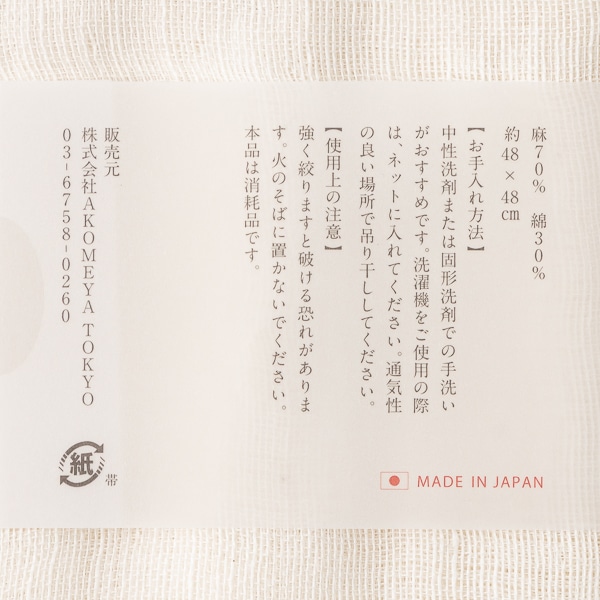 麻70% 綿30%
約48×48cm
【お手入れ方法】
中性洗剤または固形洗剤での手洗い
がおすすめです。洗濯機をご使用の際
は、ネットに入れてください。通気性
の良い場所で吊り干ししてください。
【使用上の注意】
強く絞りますと破ける恐れがありま
す。火のそばに置かないでください。
本品は消耗品です。
販売元
株式会社AKOMEYA TOKYO
03-6758-0260
紙
帯
MADE IN JAPAN